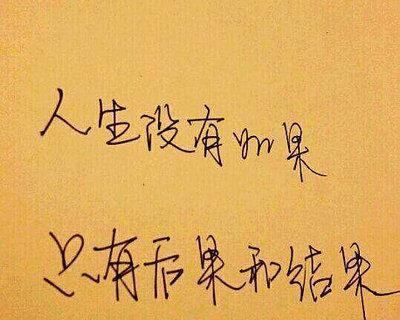 人生没有如果
只有后果和结果